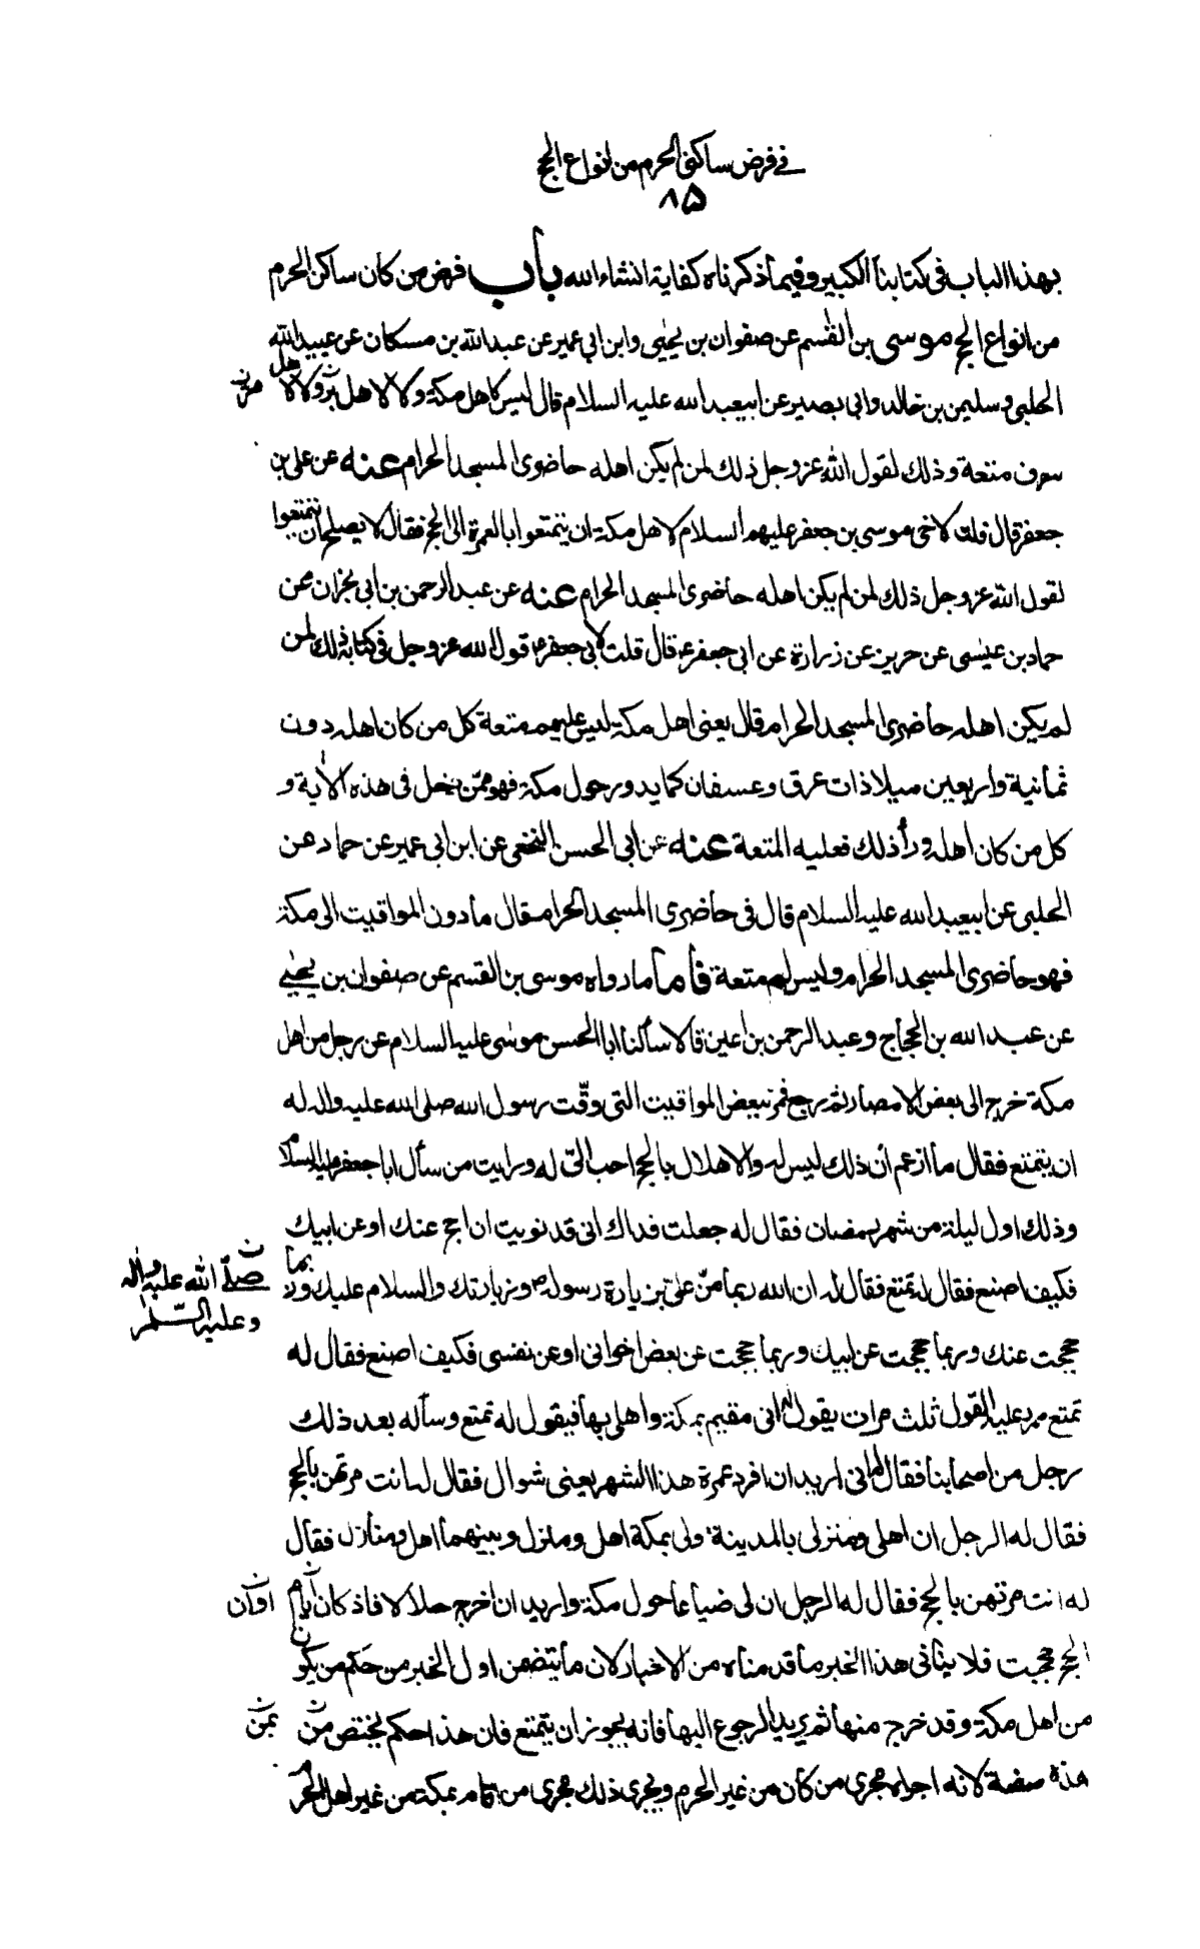 في فرض ساكني الحرم من انواع الحج
٨٥
بهذا الباب في كتابنا الكبير وفيما ذكرناه كفاية انشاء الله باب فرض من كان ساكن الحرم
من انواع الحج موسى بن القسم عن صفوان بن يحيى وابن ابي عمير عن عبد الله بن مسكان عن عبيد الله
الحلبي وسليمن بن خالد وابي بصير عن ابيعبد الله عليه السلام قال ليس لاهل مكة ولا لاهل مر ولا لاهل
سرف متعة وذلك لقول الله عز وجل ذلك لمن لم يكن اهله حاضري المسجد الحرام عنه عن علي بن
جعفر قال قلت لاخي موسى بن جعفر عليهم السلام لاهل مكة ان يتمتعوا بالعمرة الى الحج فقال لا يصلح ان يتمتعوا
لقول الله عز وجل ذلك لمن لم يكن اهله حاضري المسجد الحرام عنه عن عبد الرحمن بن ابي نجران عن
حماد بن عيسى عن حريز عن زرارة عن ابي جعفر ع قال قلت لابي جعفر ع قول الله عز وجل في كتابه ذلك لمن
لم يكن اهله حاضري المسجد الحرام قال يعني اهل مكة ليس عليهم متعة كل من كان اهله دون
ثمانية واربعين ميلا ذات عرق وعسفان كما يدور حول مكة فهو ممن دخل في هذه الآية و
كل من كان اهله وراء ذلك فعليه المتعة عنه عن ابي الحسن النخعي عن ابن ابي عمير عن حماد عن
الحلبي عن ابيعبد الله عليه السلام قال في حاضري المسجد الحرام قال ما دون المواقيت الى مكة
فهو حاضري المسجد الحرام وليس لهم متعة فأما ما رواه موسى بن القسم عن صفوان بن يحيى
عن عبد الله بن الحجاج وعبد الرحمن بن اعين قالا سألنا ابا الحسن موسى عليه السلام عن رجل من اهل
مكة خرج الى بعض الامصار ثم رجع فمر ببعض المواقيت التي وقّت رسول الله صلى الله عليه واله له
ان يتمتع فقال ما ازعم أن ذلك ليس له والاهلال بالحج احب الىّ له ورايت من سأل ابا جعفر عليه السلام
وذلك اول ليلة من شهر رمضان فقال له جعلت فداك اني قد نويت ان احج عنك او عن ابيك
صلّى الله عليه واله
وعليه السّلم
فكيف اصنع فقال له تمتع فقال له ان الله ربما منّ علىّ بزيارة رسوله ص وزيارتك والسلام عليك وربما
حججت عنك وربما حججت عن ابيك وربما حججت عن بعض اخواني او عن نفسي فكيف اصنع فقال له
تمتع فرد عليه القول ثلث مرات يقول له اني مقيم بمكة واهلي بها فيقول له تمتع وسأله بعد ذلك
رجل من اصحابنا فقال له اني اريد ان افرد عمرة هذا الشهر يعني شوال فقال له انت مرتهن بالحج
فقال له الرجل ان اهلي ومنزلي بالمدينة ولي بمكة اهل ومنزل وبينهما اهل ومنازل فقال
له انت مرتهن بالحج فقال له الرجل ان لي ضياعا حول مكة واريد ان اخرج حلالا فاذ كان ايام
الحج حججت فلا ينافي هذا الخبر ما قدمناه من الاخبار لان ما يتضمن اول الخبر من حكم من يكون
من اهل مكة وقد خرج منها ثم يريد الرجوع اليها فانه يجوز ان يتمتع فان هذا حكم يختص من
بمن
هذه صفة لانه اجراه مجرى من كان من غير الحرم ويجرى ذلك مجرى من اقام بمكة من غير اهل الحرم